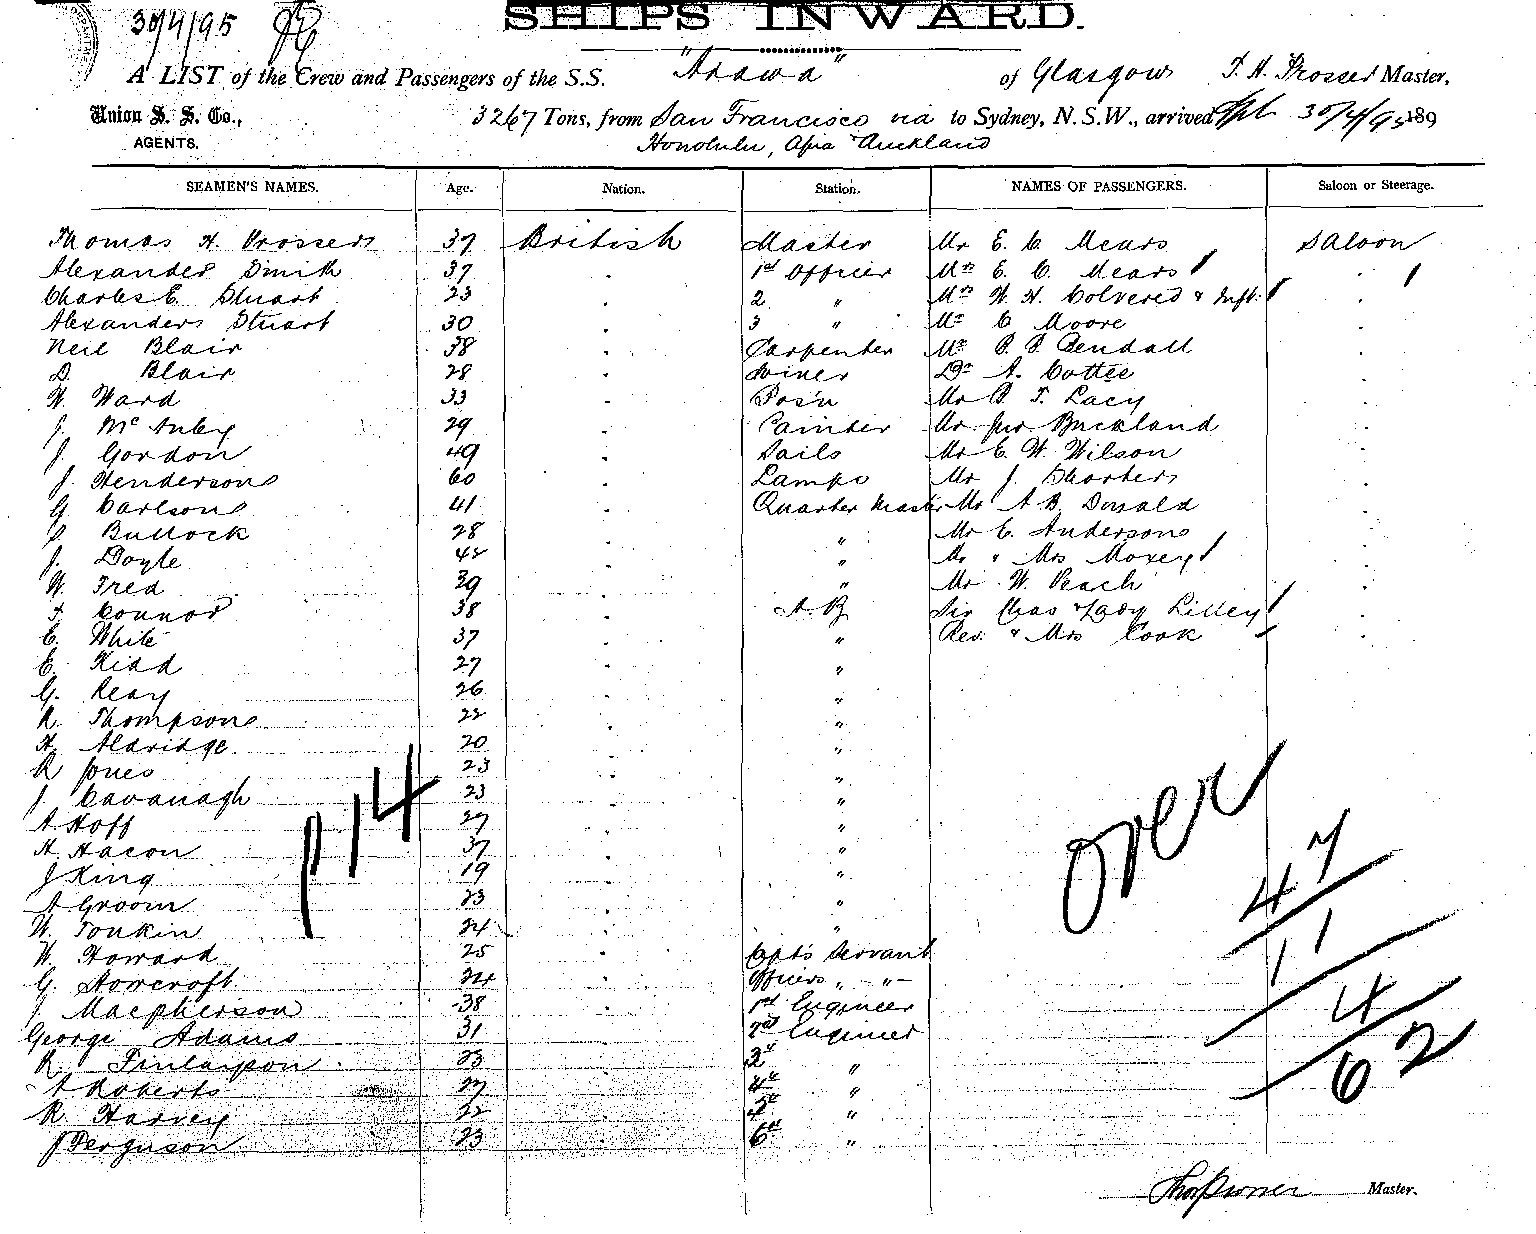 30/4/95
SHIPS INWARD.
A LIST of the Crew and Passengers of the S.S. "Arawa" of Glasgow T. H. Prosser Master,
Union S. S. Co., 3267 Tons, from San Francisco via to Sydney, N.S.W., arrived 30/4/95 189
AGENTS. Honolulu, Apia & Auckland
SEAMEN'S NAMES. Age. Nation. Station. NAMES OF PASSENGERS. Saloon or Steerage.
Thomas H. Prosser 37 British Master Mr E. C. Mears Saloon
Alexander Smith 37 " 1st Officer Mrs E. C. Mears "
Charles E. Stuart 23 " 2 " Mrs W. H. Colvered & Inft. "
Alexander Stuart 30 " 3 " Mr C Moore "
Neil Blair 38 " Carpenter Mr Rendall "
D. Blair 28 " Joiner Dr A. Cottee "
W. Ward 33 " Bos'n Mr T. Lacy "
J. 29 " Painter Mr Jno Buckland "
J. Gordon 49 " Sails Mr E. W. Wilson "
J. Henderson 60 " Lamps Mr J. Shorter "
G. Carlson 41 " Quarter Master Mr A. B. Donald "
C. Bullock 28 " " Mr E. Anderson "
J. Doyle 42 " " Mr & Mrs Moxey "
W. Fred 39 " " Mr W. Peach "
F. Connor 38 " A B Sir Chas & Lady Lilley "
C. White 37 " " Rev. & Mrs Cook "
E. Kidd 27 " "
G. Reay 26 " "
R. Thompson 22 " "
H. Aldridge 20 " "
R Jones 23 " "
J. Cavanagh 23 " "
A Hoff 27 " "
H. Hacon 37 " "
J King 19 " "
A Groom 23 " "
W. Tonkin 24 " "
W. Howard 25 " Capt's Servant
G. Howcroft 24 " Officers " "
J. Macpherson 38 " 1st Engineer
George Adams 31 " 2nd Engineer
R. Finlayson 23 3rd "
A Roberts 27 4th "
R Harvey 22 5th "
J Ferguson 23 6th "
P 114
over
47
11
4
62
Thos Prosser Master.